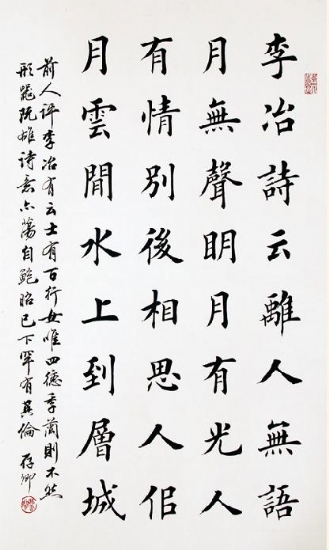 李冶詩云離人無語
月無聲明月有光人
有情別後相思人佀
月雲間水上到層城
前人评李冶有云士有百行女唯四德季蘭則不然
形氣既雄诗意亦蕩自鮑昭已下罕有其倫 存卿